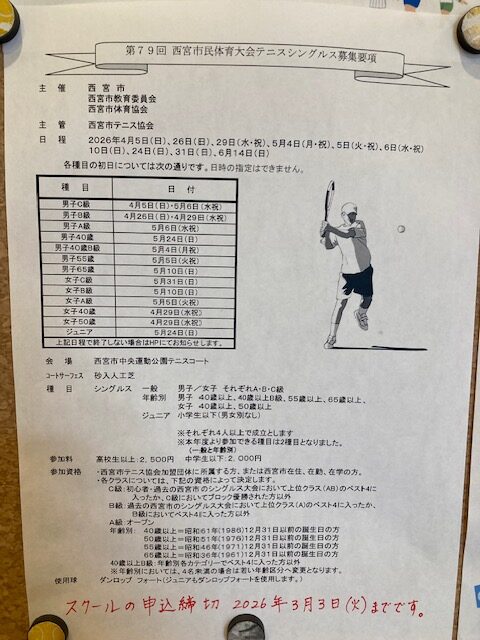 第79回 西宮市民体育大会テニスシングルス募集要項
主 催 西 宮 市
西宮市教育委員会
西宮市体育協会
主 管 西宮市テニス協会
日 程 2026年4月5日(日)、26日(日)、29日(水・祝)、5月4日(月・祝)、5日(火・祝)、6日(水・祝)
10日(日)、24日(日)、31日(日)、6月14日(日)
各種目の初日については次の通りです。日時の指定はできません。
種 目 日 付
男子C級 4月5日(日)・5月6日(水祝)
男子B級 4月26日(日)・4月29日(水祝)
男子A級 5月6日(水祝)
男子40歳 5月24日(日)
男子40歳B級 5月4日(月祝)
男子55歳 5月5日(火祝)
男子65歳 5月10日(日)
女子C級 5月31日(日)
女子B級 5月10日(日)
女子A級 5月5日(火祝)
女子40歳 4月29日(水祝)
女子50歳 4月29日(水祝)
ジュニア 5月24日(日)
上記日程で終了しない場合はHPにてお知らせします。
会 場 西宮市中央運動公園テニスコート
コートサーフェス 砂入人工芝
種 目 シングルス 一般 男子/女子 それぞれA・B・C級
年齢別 男子 40歳以上、40歳以上B級、55歳以上、65歳以上、
女子 40歳以上、50歳以上
ジュニア 小学生以下(男女別なし)
※それぞれ4人以上で成立とします
※本年度より参加できる種目は2種目となりました。
(一般と年齢別)
参加料 高校生以上:2,500円 中学生以下:2,000円
参加資格 ・西宮市テニス協会加盟団体に所属する方、または西宮市在住、在勤、在学の方。
・各クラスについては、下記の資格によって決定します。
C級:初心者・過去の西宮市のシングルス大会において上位クラス(AB)のベスト4に
入ったか、C級においてブロック優勝された方以外
B級:過去の西宮市のシングルス大会において上位クラス(A)のベスト4に入ったか、
B級においてベスト4に入った方以外
A級:オープン
年齢別: 40歳以上=昭和61年(1986)12月31日以前の誕生日の方
50歳以上=昭和51年(1976)12月31日以前の誕生日の方
55歳以上=昭和46年(1971)12月31日以前の誕生日の方
65歳以上=昭和36年(1961)12月31日以前の誕生日の方
40歳以上B級:年齢別各カテゴリーでベスト4に入った方以外
※年齢別においては、4名未満の場合は若い年齢区分へ変更となります。
使用球 ダンロップ フォート(ジュニアもダンロップフォートを使用します。)
スクールの申込締切 2026年3月3日(火)までです。